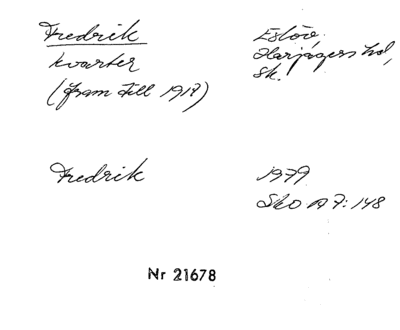 Fredrik
Eslöv.
kvarter
Harjagers hd,
(fram till 1917)
Sk.
Fredrik
1979
SkO A7:148
Nr 21678